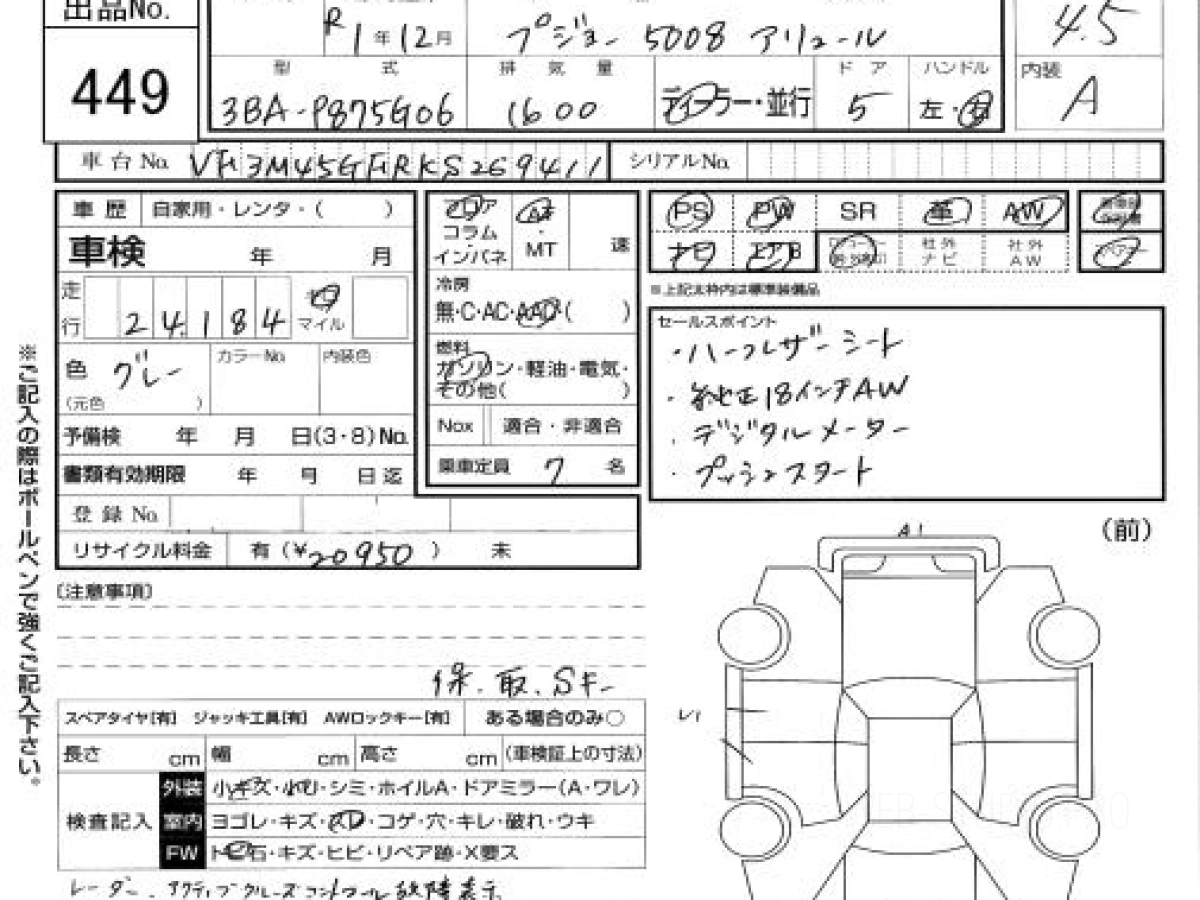 出品No.
449
R1年12月 プジョー 5008 アリュール
4.5
型 式 排 気 量 ドア ハンドル 内装
3BA-P875G06 1600 ディーラー・並行 5 左・右 A
車台No. VF3M45GFRKS269411 シリアルNo.
車 歴 自家用・レンタ・( )
車検 年 月
走行 24,184 キロ マイル
色 グレー カラーNo. 内装色
(元色 )
予備検 年 月 日(3・8)No.
書類有効期限 年 月 日迄
登録No.
リサイクル料金 有(¥20950) 未
フロア コラム インパネ AT・MT 速
冷房
無・C・AC・AAC(　　)
燃料
ガソリン・軽油・電気・
その他(　　)
Nox 適合・非適合
乗車定員 7 名
PS PW SR 革 AW
ナビ エアB 社外ナビ 社外AW
※上記太枠内は標準装備品
セールスポイント
・ハーフレザーシート
・純正18インチAW
・デジタルメーター
・プッシュスタート
(前)
A1
(注意事項)
保.取.Sキー
スペアタイヤ[有] ジャッキ工具[有] AWロックキー[有] ある場合のみ○
長さ cm 幅 cm 高さ cm (車検証上の寸法)
検査記入
外装 小キズ・小凹・シミ・ホイルA・ドアミラー(A・ワレ)
室内 ヨゴレ・キズ・スレ・コゲ・穴・キレ・破れ・ウキ
FW トビ石・キズ・ヒビ・リペア跡・X要ス
レーダー.アクティブクルーズコントロール故障表示
※ご記入の際はボールペンで強くご記入下さい。